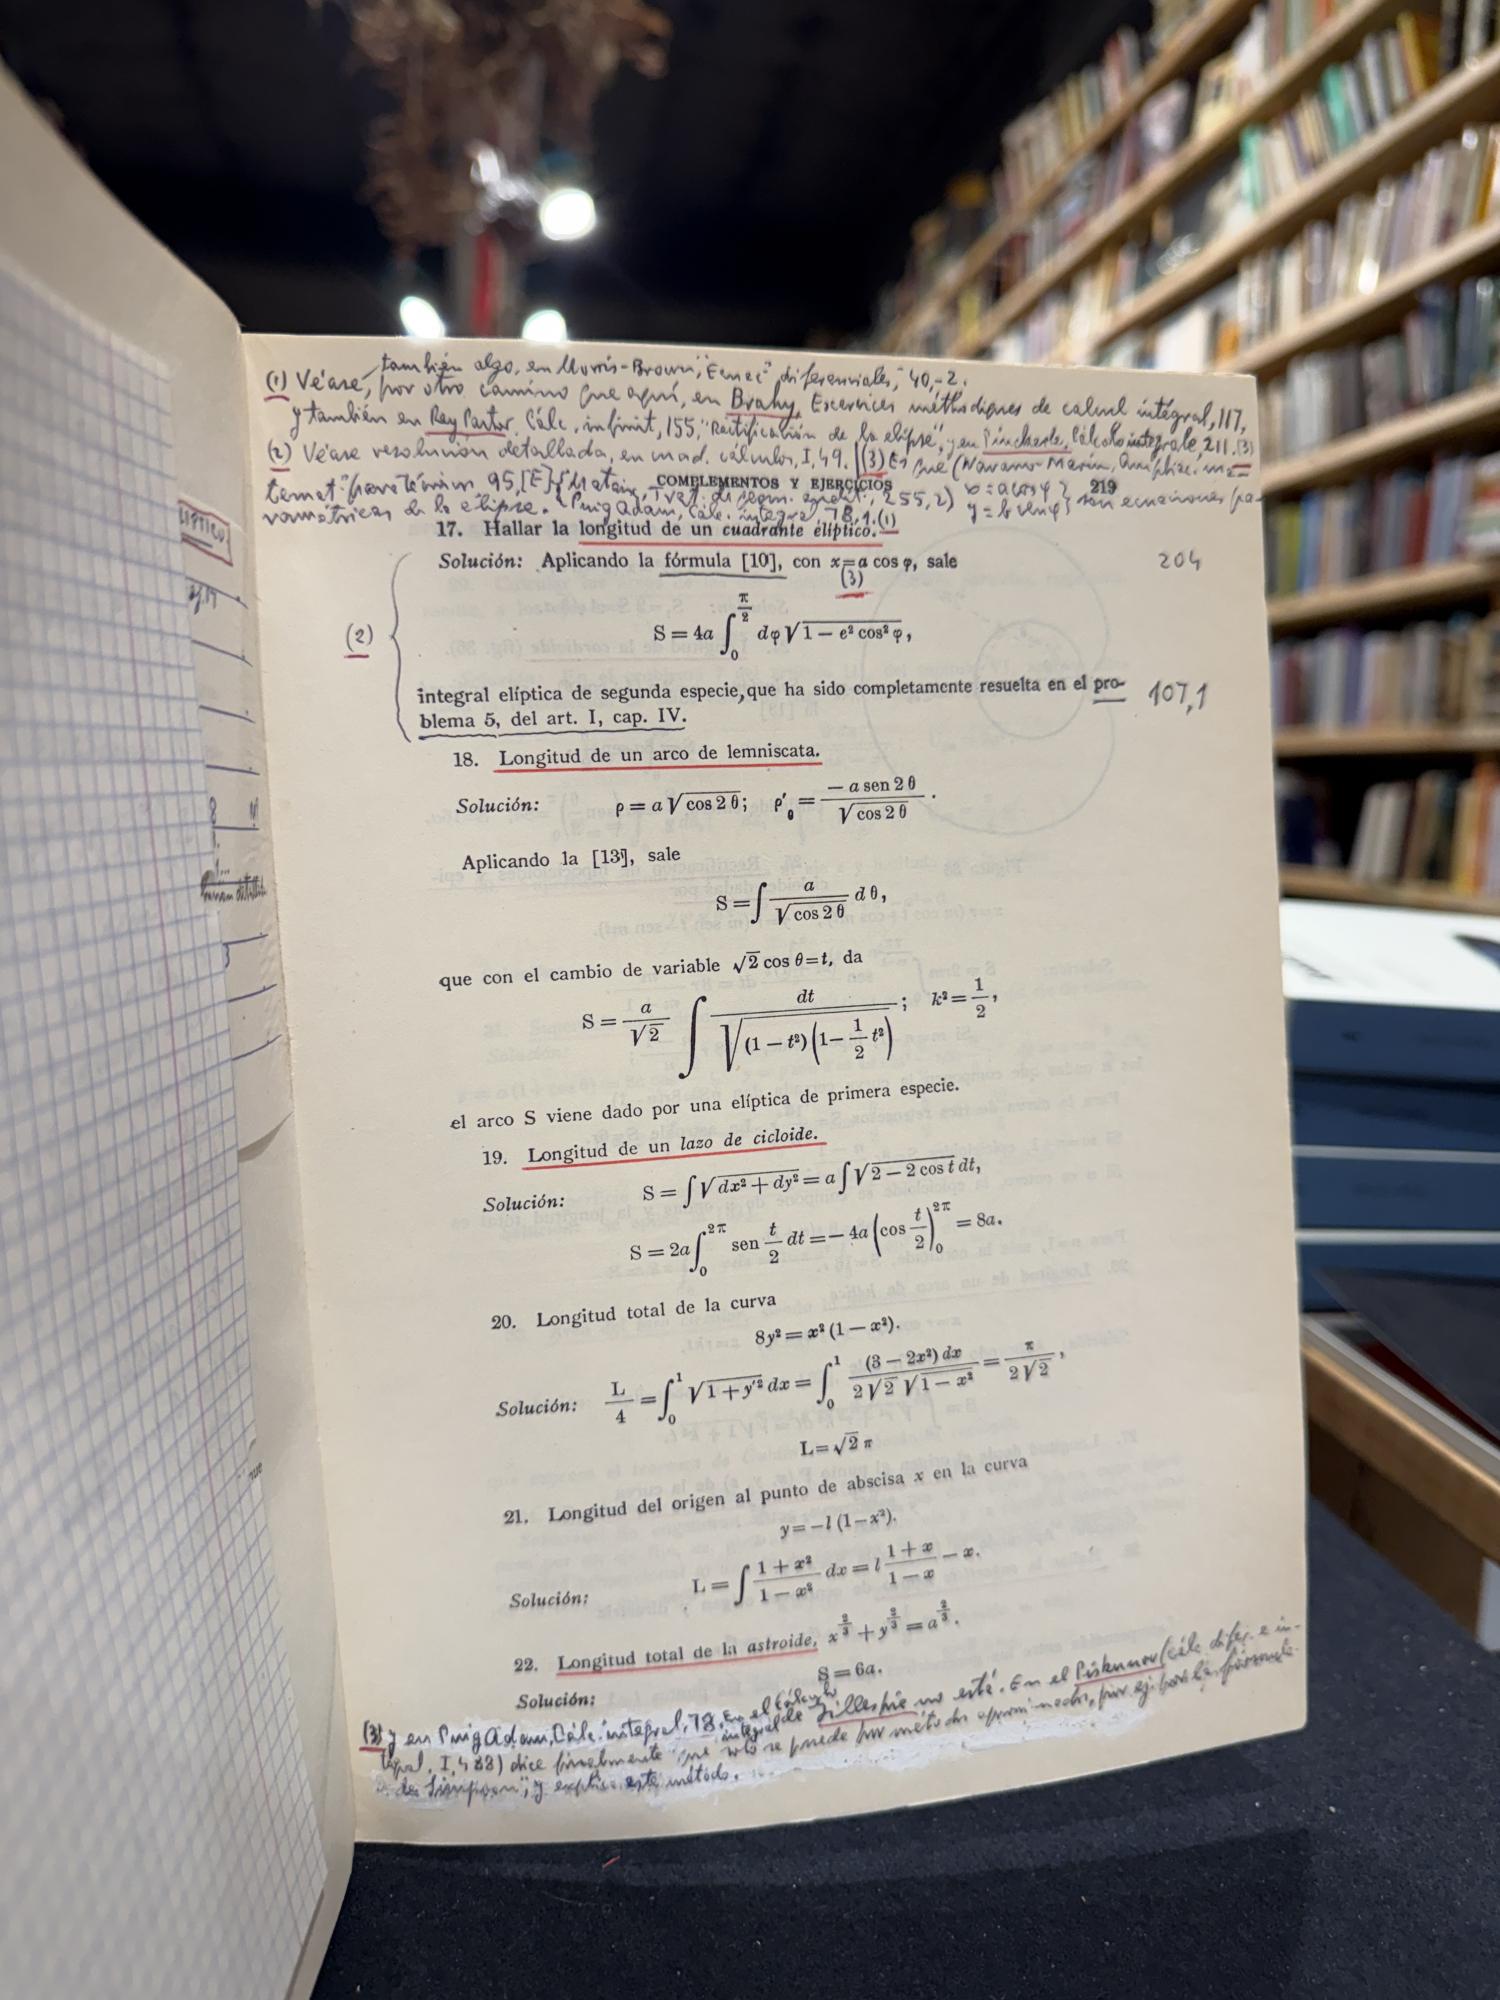 (1) Véase, también algo, en Morris-Brown, "Ecuac.^s diferenciales," 40,-2.
por otro camino que aquí, en Brahy, Exercices méthodiques de calcul intégral, 117,
y también en Rey Pastor, Cálc. infinit, 155, "Rectificación de la elipse", y en Pincherle, Calcolo integrale, 211. (3)
(2) Véase resolución detallada, en mad. cálculos, I, 49. (3) Es que (Navarro-
temat. para Técnicos 95, [E] y Mataix, Trat. de geom. analít., 255, 2) x = a cos φ } son ecuaciones pa-
COMPLEMENTOS Y EJERCICIOS 219
ramétricas de la elipse. (Puig Adam, Cálc. integral 78, 1. (1) y = b sen φ
17. Hallar la longitud de un cuadrante elíptico.
Solución: Aplicando la fórmula [10], con x = a cos φ, sale 204
(3)
(2) S = 4a ∫₀^{π/2} dφ √(1 − e² cos² φ),
integral elíptica de segunda especie, que ha sido completamente resuelta en el pro- 107,1
blema 5, del art. I, cap. IV.
18. Longitud de un arco de lemniscata.
Solución: ρ = a √(cos 2 θ); ρ'_θ = −a sen 2 θ / √(cos 2 θ) .
Aplicando la [13], sale
S = ∫ a / √(cos 2 θ) d θ,
que con el cambio de variable √2 cos θ = t, da
S = a/√2 ∫ dt / √((1 − t²)(1 − 1/2 t²)) ; k² = 1/2,
el arco S viene dado por una elíptica de primera especie.
19. Longitud de un lazo de cicloide.
Solución: S = ∫ √(dx² + dy²) = a ∫ √(2 − 2 cos t) dt,
S = 2a ∫₀^{2π} sen t/2 dt = − 4a (cos t/2)₀^{2π} = 8a.
20. Longitud total de la curva
8y² = x² (1 − x²).
Solución: L/4 = ∫₀¹ √(1 + y'²) dx = ∫₀¹ (3 − 2x²) dx / (2√2 √(1 − x²)) = π / (2√2) ,
L = √2 π
21. Longitud del origen al punto de abscisa x en la curva
y = −l (1 − x²).
Solución: L = ∫ (1 + x²)/(1 − x²) dx = l (1 + x)/(1 − x) − x.
22. Longitud total de la astroide, x^{2/3} + y^{2/3} = a^{2/3}.
Solución: S = 6a.
(3) y en Puig Adam, Cálc. integral, 78. En el Cálculo integral de Gillespie no está. En el Piskunov (cálc. difer. e in-
tegral, I, 488) dice finalmente que sólo se puede por métodos aproximados, por ej. por la fórmula
de Simpson", y explica este método.